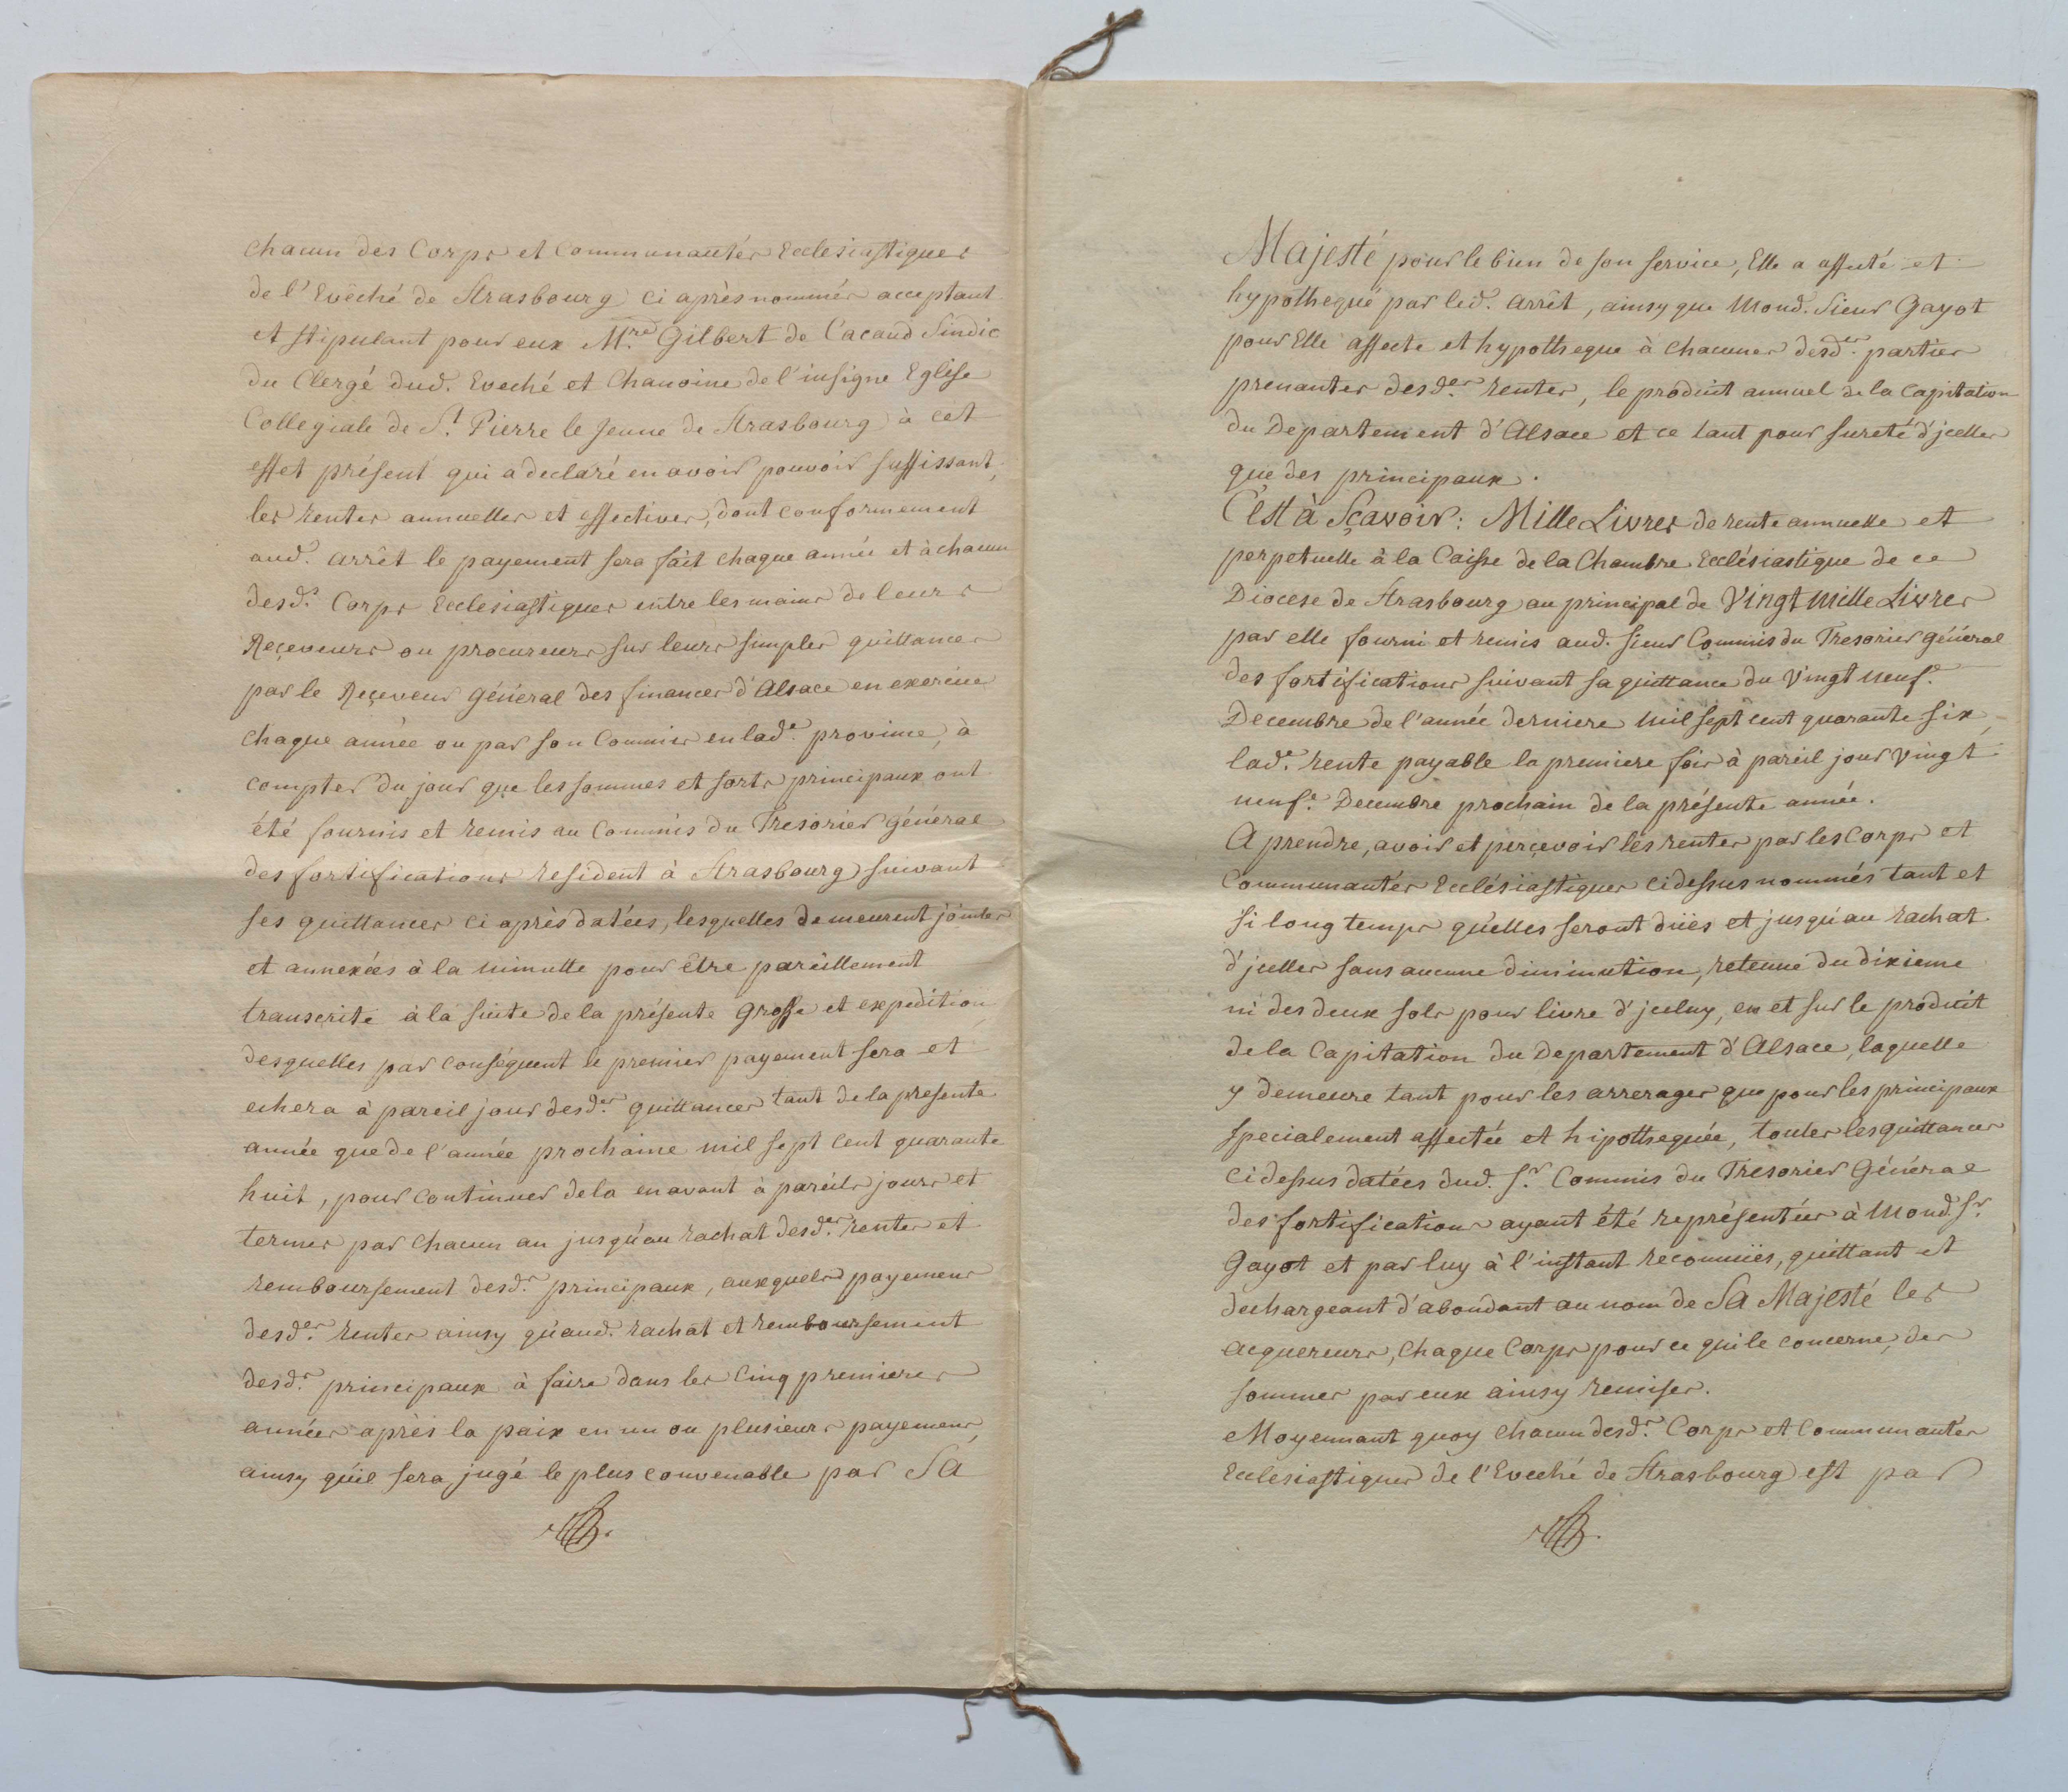 chacun des Corps et Communautés Ecclesiastiques
de l'Evêché de Strasbourg ci après nommés acceptant
et stipulant pour eux M.re Gilbert de Cacaud Sindic
du Clergé dud. Eveché et Chanoine de l'insigne Eglise
Collegiale de S.t Pierre le Jeune de Strasbourg à cet
effet présent qui a declaré en avoir pouvoir suffissant,
les rentes annuelles et effectives, dont conformement
aud. arrêt le payement sera fait chaque année et à chacun
desd.s Corps Ecclesiastiques entre les mains de leurs
Reçeveurs ou procureurs sur leurs simples quittances
par le Reçeveur général des finances d'Alsace en exercice
chaque année ou par son Commis en lad.e province, à
compter du jour que les sommes et sorts principaux ont
été fournis et remis au Commis du Tresorier général
des fortifications resident à Strasbourg suivant
ses quittances ci après datées, lesquelles demeurent jointes
et annexées à la minutte pour être pareillement
transcrite à la suite de la présente grosse et expedition,
desquelles par conséquent le premier payement sera et
echera à pareil jour desd.es quittances tant de la presente
année que de l'année prochaine mil sept cent quarante
huit, pour continuer dela en avant à pareils jours et
termes par chacun an jusqu'au rachat desd.es rentes et
remboursement desd.s principaux, auxquels payemens
desd.es rentes ainsy qu'aud. rachat et remboursement
desd.s principaux à faire dans les Cinq premieres
années après la paix en un ou plusieurs payemens,
ainsy qu'il sera jugé le plus convenable par Sa
Majesté pour le bien de son service, Elle a affecté et
hypotheque par led. arrêt, ainsy que Mond. Sieur Gayot
pour Elle affecte et hypotheque à chacunes desd.es parties
prenantes desd.es rentes, le produit annuel de la Capitation
du Departement d'Alsace et ce tant pour sureté d'jcelles
que des principaux.
C'est à Sçavoir: Mille Livres de rente annuelle et
perpetuelle à la Caisse de la Chambre Ecclésiastique de ce
Diocese de Strasbourg au principal de Vingt mille Livres
par elle fourni et remis aud. sieur Commis du Tresorier général
des fortifications suivant sa quittance du Vingt neuf.e
Decembre de l'année derniere mil sept cent quarante six,
lad.e rente payable la premiere fois à pareil jour Vingt
neuf.e Decembre prochain de la présente année.
A prendre, avoir et perçevoir les rentes par les Corps et
Communautés Ecclésiastiques cidessus nommés tant et
si long temps qu'elles seront düës et jusqu'au rachat
d'jcelles sans aucune diminution, retenue du dixieme
ni des deux sols pour livre d'jceluy, en et sur le produit
de la Capitation du Departement d'Alsace, laquelle
y demeure tant pour les arrerages que pour les principaux
specialement affectée et hipothequée, toutes les quittances
cidessus datées dud. S.r Commis du Tresorier Général
des fortifications ayant été représentées à Mond. S.r
Gayot et par luy à l'instant reconnuës, quittant et
dechargeant d'abondant au nom de Sa Majesté les
acquereurs, chaque Corps pour ce qui le concerne, des
sommes par eux ainsy remises.
Moyennant quoy chacun desd.s Corps et Communautés
Ecclesiastiques de l'Eveché de Strasbourg est par